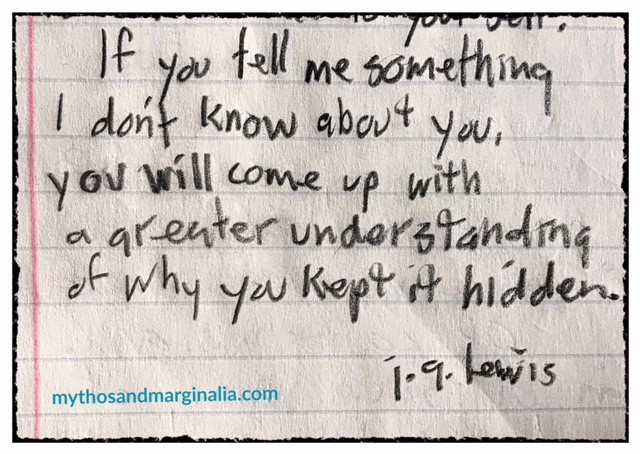 to your self.
If you tell me something
I don't know about you,
you will come up with
a greater understanding
of why you kept it hidden.
j.g. Lewis
mythosandmarginalia.com